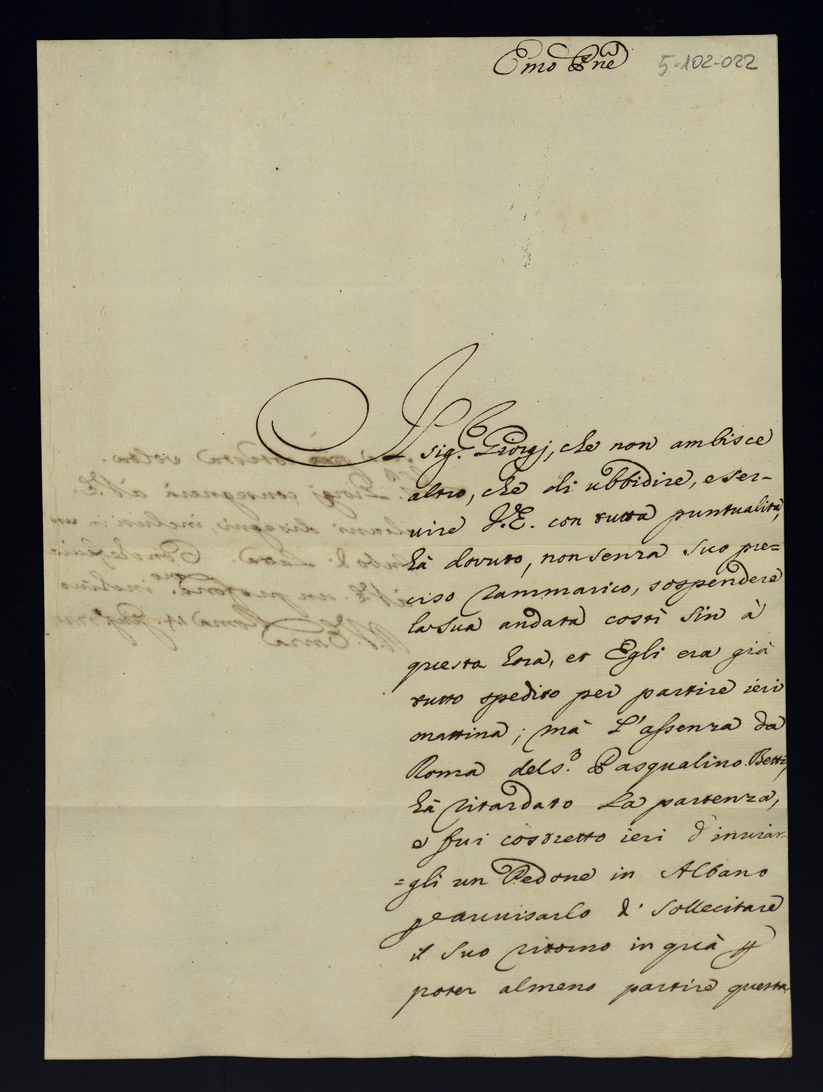 Emo Pne
5-102-022
Il sig.r Giorgj, che non ambisce
altro, che di ubbidire, e ser-
uire V.E. con tutta puntualità,
hà dovuto, non senza suo pre=
ciso rammarico, sospendere
la sua andata costì sin à
questa hora, et Egli era già
tutto spedito per partire ieri
mattina; mà l'assenza da
Roma del s.r Pasqualino Betti,
hà ritardato la partenza,
e fui costretto ieri d'inviar-
=gli un Pedone in Albano
p auuisarlo d'sollecitare
il suo ritorno in quà p
poter almeno partire questa